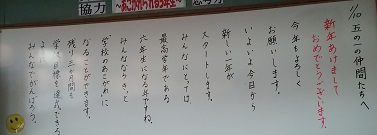 協力
1/10 五の一の仲間たちへ
新年あけまして
おめでとうございます。
今年もよろしく
お願いします。
いよいよ今日から
新しい一年が
スタートします。
みんなにとっては、
最高学年である
六年生になる年ですね。
みんななりきっと
学校のあこがれに
なることができます。
残り三か月間も
学級目標を達成できるよう
みんなでがんばろう。